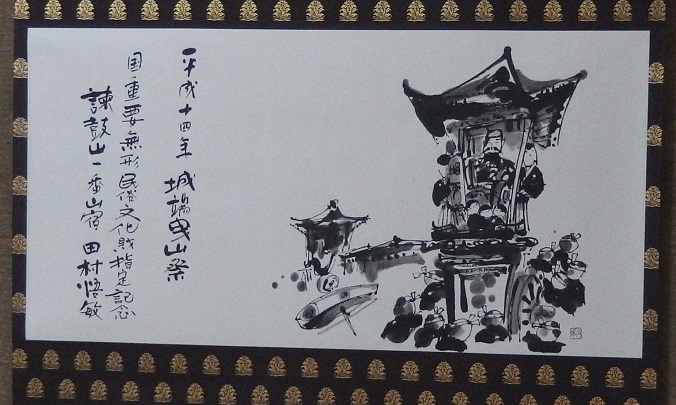 平成十四年 城端曳山祭
国重要無形民俗文化財指定記念
諫鼓山一番山宿 田村悟敏